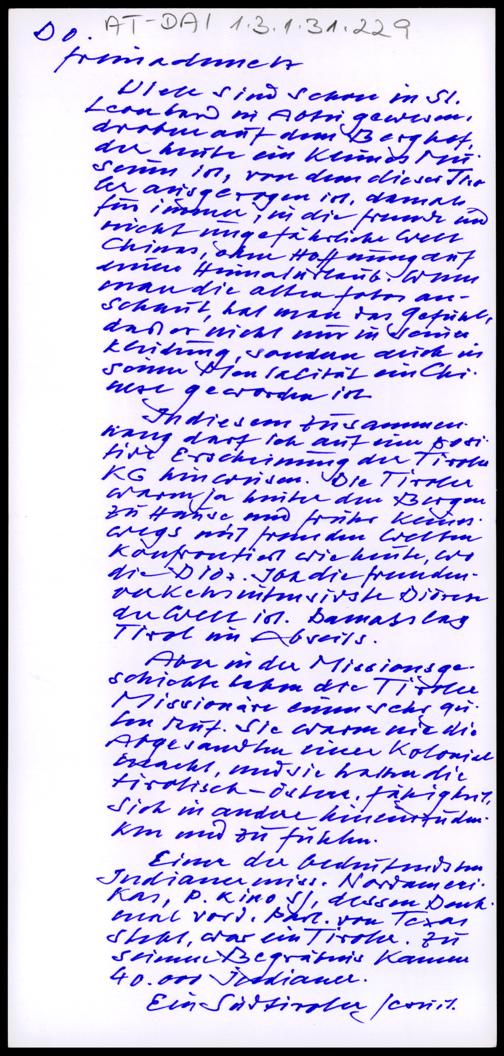 AT-DAI 1.3.1.31.229
Do.
Freinademetz
Viele sind schon in St.
Leonhard in Abtei gewesen,
droben auf dem Berghof,
der heute ein kleines Mu-
seum ist, von dem dieser Tiro-
ler ausgezogen ist, damals
für immer, in die fremde und
nicht ungefährliche Welt
Chinas, ohne Hoffnung auf
einen Heimaturlaub. Wenn
man die alten Fotos an-
schaut, hat man das Gefühl,
daß er nicht nur in seiner
Kleidung, sondern auch in
seiner Mentalität ein Chi-
nese geworden ist.
In diesem Zusammen-
hang darf ich auf eine posi-
tive Erscheinung der Tiroler
KG hinweisen. Die Tiroler
waren ja hinter den Bergen
zu Hause und früher keines-
wegs mit fremden Welten
konfrontiert wie heute, wo
die Diöz. Ibk die fremden-
verkehrsintensivste Diözese
der Welt ist. Damals lag
Tirol im Abseits.
Aber in der Missionsge-
schichte haben die Tiroler
Missionäre einen sehr gu-
ten Ruf. Sie waren nie die
Abgesandten einer Kolonial-
macht, und sie hatten die
tirolisch-österr. Fähigkeit,
sich in andere hineinzuden-
ken und zu fühlen.
Einer der bedeutendsten
Indianermiss. Nordameri-
kas, P. Kino SJ, dessen Denk-
mal vor d. Parl. von Texas
steht, war ein Tiroler. Zu
seinem Begräbnis kamen
40.000 Indianer.
Ein Südtiroler